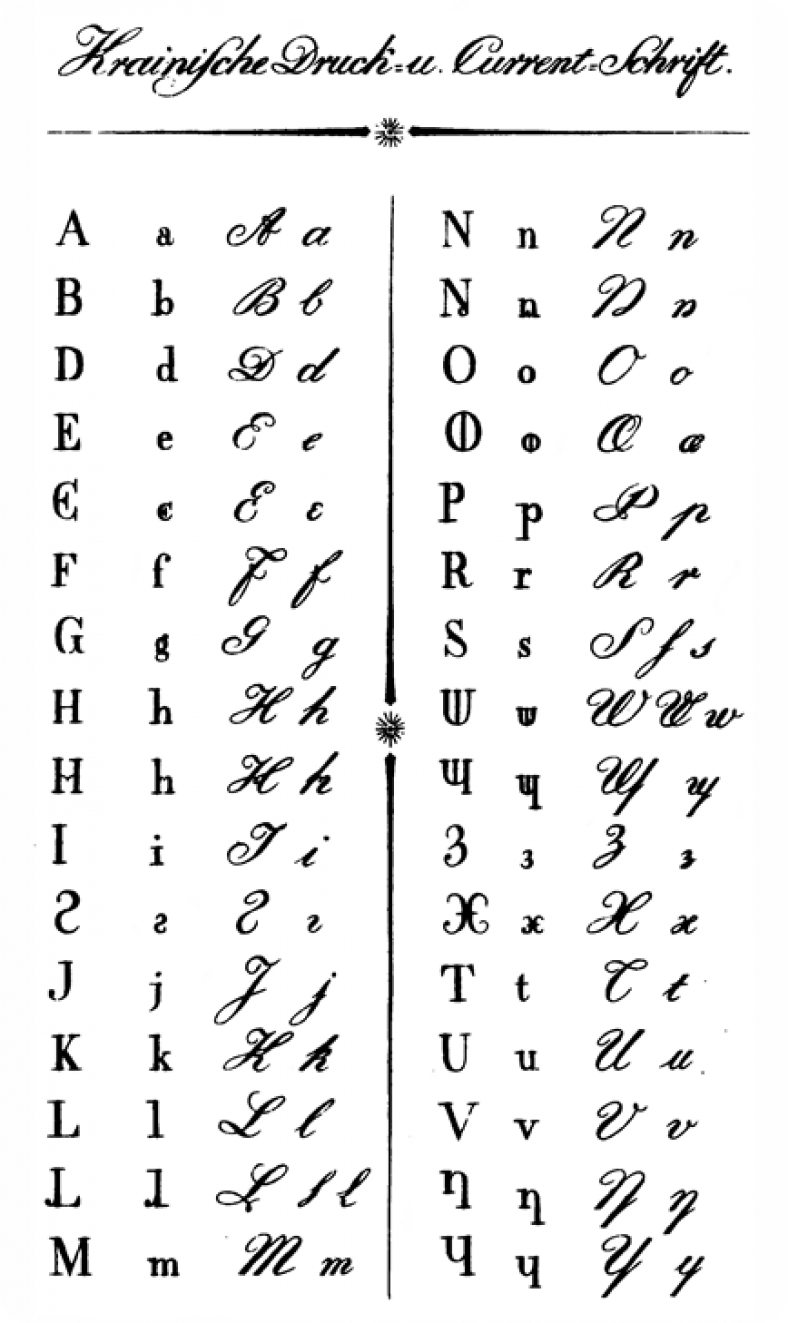 Krainiſche Druck=u. Current=Schrift.
A a A a
B b B b
D d D d
E e E e
Є є Ɛ ɛ
F f F f
G g G g
H h H h
I i I i
Ƨ ƨ Ƨ ƨ
J j J j
K k K k
L l L l
M m M m
N n N n
Ŋ ŋ Ŋ ŋ
O o O o
Ⲫ ⲫ Œ œ
P p P p
R r R r
S s S ſ s
Ш ш W W w
Щ щ Щ щ
З з З з
Ж ж Ж ж
T t T t
U u U u
V v V v
Ƞ ƞ Ƞ ƞ
Ч ч Ч ч